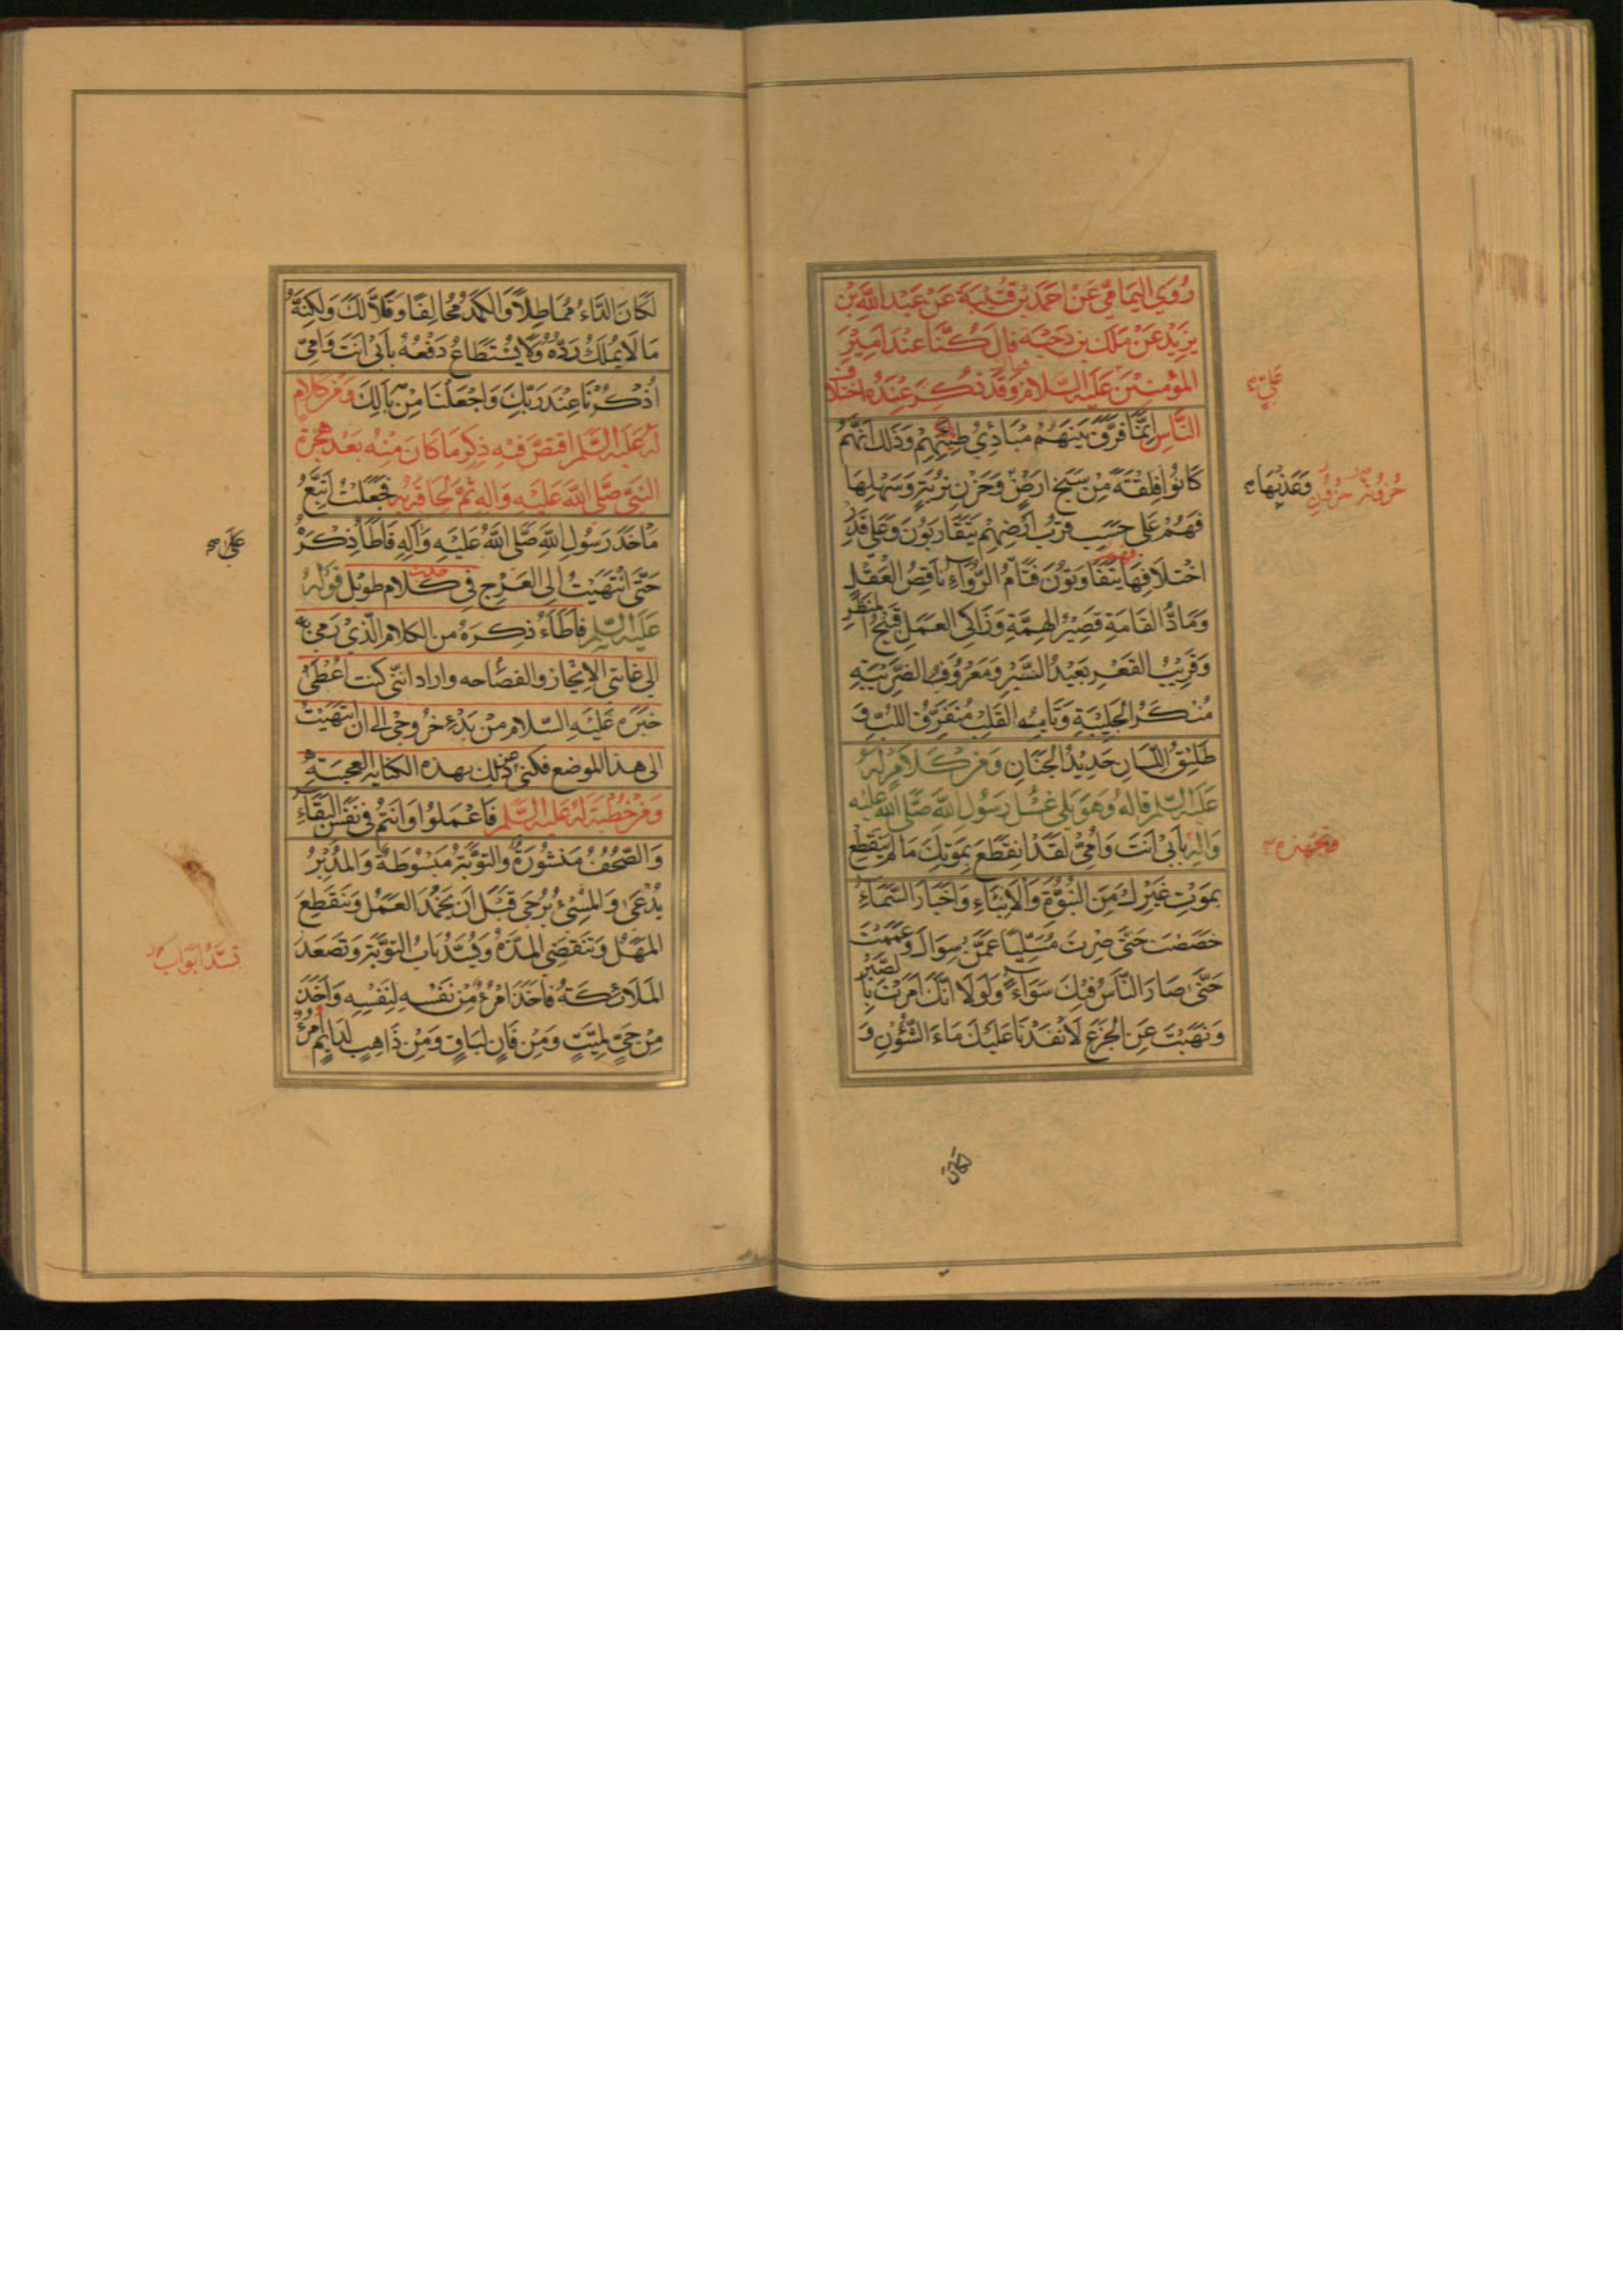 رُوِيَ اليَمَامِيُّ عَنْ اَحْمَدَ بْنِ قُتَيْبَةَ عَنْ عَبْدِ اللَّهِ بْنِ
يَزِيْدَ عَنْ مٰلِكِ بْنِ دَحْيَةَ قَالَ كُنَّا عِنْدَ اَمِيْرِ
المُؤْمِنِيْنَ عَلَيْهِ السَّلَام وَقَدْ ذُكِرَ عِنْدَهُ اخْتِلَافُ
النَّاسِ اِنَّمَا فَرَّقَ بَيْنَهُمْ مَبَادِيُ طِيْنِهِمْ وَذٰلِكَ اَنَّهُمْ
كَانُوْا فِلْقَةً مِنْ سَبَخِ اَرْضٍ وَحَزْنِ تُرْبَةٍ وَسَهْلِهَا
فَهُمْ عَلٰى حَسَبِ قُرْبِ اَرْضِهِمْ يَتَقَارَبُوْنَ وَعَلٰى قَدْرِ
اخْتِلَافِهَا يَتَفَاوَتُوْنَ فَتَامُّ الرُّوَاءِ نَاقِصُ العَقْلِ
وَمَادُّ القَامَةِ قَصِيْرُ الهِمَّةِ وَزَاكِى العَمَلِ قَبِيْحُ المَنْظَرِ
وَقَرِيْبُ القَعْرِ بَعِيْدُ السَّبْرِ وَمَعْرُوْفُ الضَّرِيْبَةِ
مُنْكَرُ الجَلِيْبَةِ وَتَايِهُ القَلْبِ مُتَفَرِّقُ اللُّبِّ وَ
طَلِيْقُ اللِّسَانِ حَدِيْدُ الجَنَانِ وَمِنْ كَلَامٍ لَهُ
عَلَيْهِ السَّلم قَالَهُ وَهُوَ يَلِي غُسْلَ رَسُوْلِ اللَّهِ صَلَّى اللَّه عَلَيْهِ
وَالِهِ بِاَبِيْ اَنْتَ وَاُمِّيْ لَقَدْ انْقَطَعَ بِمَوْتِكَ مَا لَمْ يَنْقَطِعْ
بِمَوْتِ غَيْرِكَ مِنَ النُّبُوَّةِ وَالْاِنْبَاءِ وَاَخْبَارِ السَّمَاءِ
خَصَصْتَ حَتّٰى صِرْتَ مُسَلِّيًا عَمَّنْ سِوَاكَ وَعَمَمْتَ
حَتّٰى صَارَ النَّاسُ فِيْكَ سَوَاءً وَلَوْلَا اَنَّكَ اَمَرْتَ بِالصَّبْرِ
وَنَهَيْتَ عَنِ الجَزَعِ لَاَنْفَدْنَا عَلَيْكَ مَاءَ الشُّؤُنِ وَ
عَلِيٍّ
حُزُونَة وَعَذْبِهَا
لَكَانَ الدَّاءُ مُمَاطِلًا وَالكَمَدُ مُحَالِفًا وَقَلَّا لَكَ وَلٰكِنَّهُ
مَا لَا يُمْلَكُ رَدُّهُ وَلَا يُسْتَطَاعُ دَفْعُهُ بِاَبِيْ اَنْتَ وَاُمِّيْ
اُذْكُرْنَا عِنْدَ رَبِّكَ وَاجْعَلْنَا مِنْ بَالِكَ وَمِنْ كَلَامٍ
لَهُ عَلَيْهِ السَّلم اقْتَصَّ فِيْهِ ذِكْرَ مَا كَانَ مِنْهُ بَعْدَ هِجْرَةِ
النَّبِيِّ صَلَّى اللَّه عَلَيْهِ وَالِهِ ثُمَّ لِحَاقِهِ بِهِ فَجَعَلْتُ اَتَّبِعُ
مَاْخَذَ رَسُوْلِ اللَّهِ صَلَّى اللَّهُ عَلَيْهِ وَاٰلِهِ فَاَطَاُ ذِكْرَهُ
حَتّٰى انْتَهَيْتُ اِلَى العَرْجِ فِي كَلَام طَوِيْل قَوْلُهُ
عَلَيْهِ السَّلم فَاَطَاَءُ ذِكْرَهُ من الكلام الَّذِيْ رَمٰى بِهِ
اِلٰى غَايَتَى الاِيْجَازِ والفصَاحه واراد انّنى كنت اُعْطٰى
خَبَرَه عَلَيْهِ السَّلام مِنْ بَدْءِ خُرُوْجِيْ الٰى ان انْتَهَيْتُ
الٰى هذا الموضع فكنى عَنْ ذٰلِكَ بهذه الكنايه العجيبة
وَمِنْ خُطْبَة لَهُ عَلَيْهِ السَّلم فَاعْمَلُوْا وَاَنْتُمْ فِي نَفَسِ البَقَاءِ
وَالصُّحُفُ مَنْشُوْرَةٌ وَالتَّوْبَةُ مَبْسُوْطَةٌ وَالمُدْبِرُ
يُدْعٰى وَالمُسِيْءُ يُرْجٰى قَبْلَ اَنْ يَخْمُدَ العَمَلُ وَيَنْقَطِعَ
المَهَلُ وَتَنْقَضِيَ المُدَّةُ وَيُسَدَّ بَابُ التَّوْبَةِ وَتَصْعَدَ
المَلَائِكَةُ فَاَخَذَ امْرُءٌ مِنْ نَفْسِهِ لِنَفْسِهِ وَاَخَذَ
مِنْ حَيٍّ لِمَيِّتٍ وَمِنْ فَانٍ لِبَاقٍ وَمِنْ ذَاهِبٍ لِدَايِمٍ امْرُءٌ
تُسَدَّ اَبْوَابُ